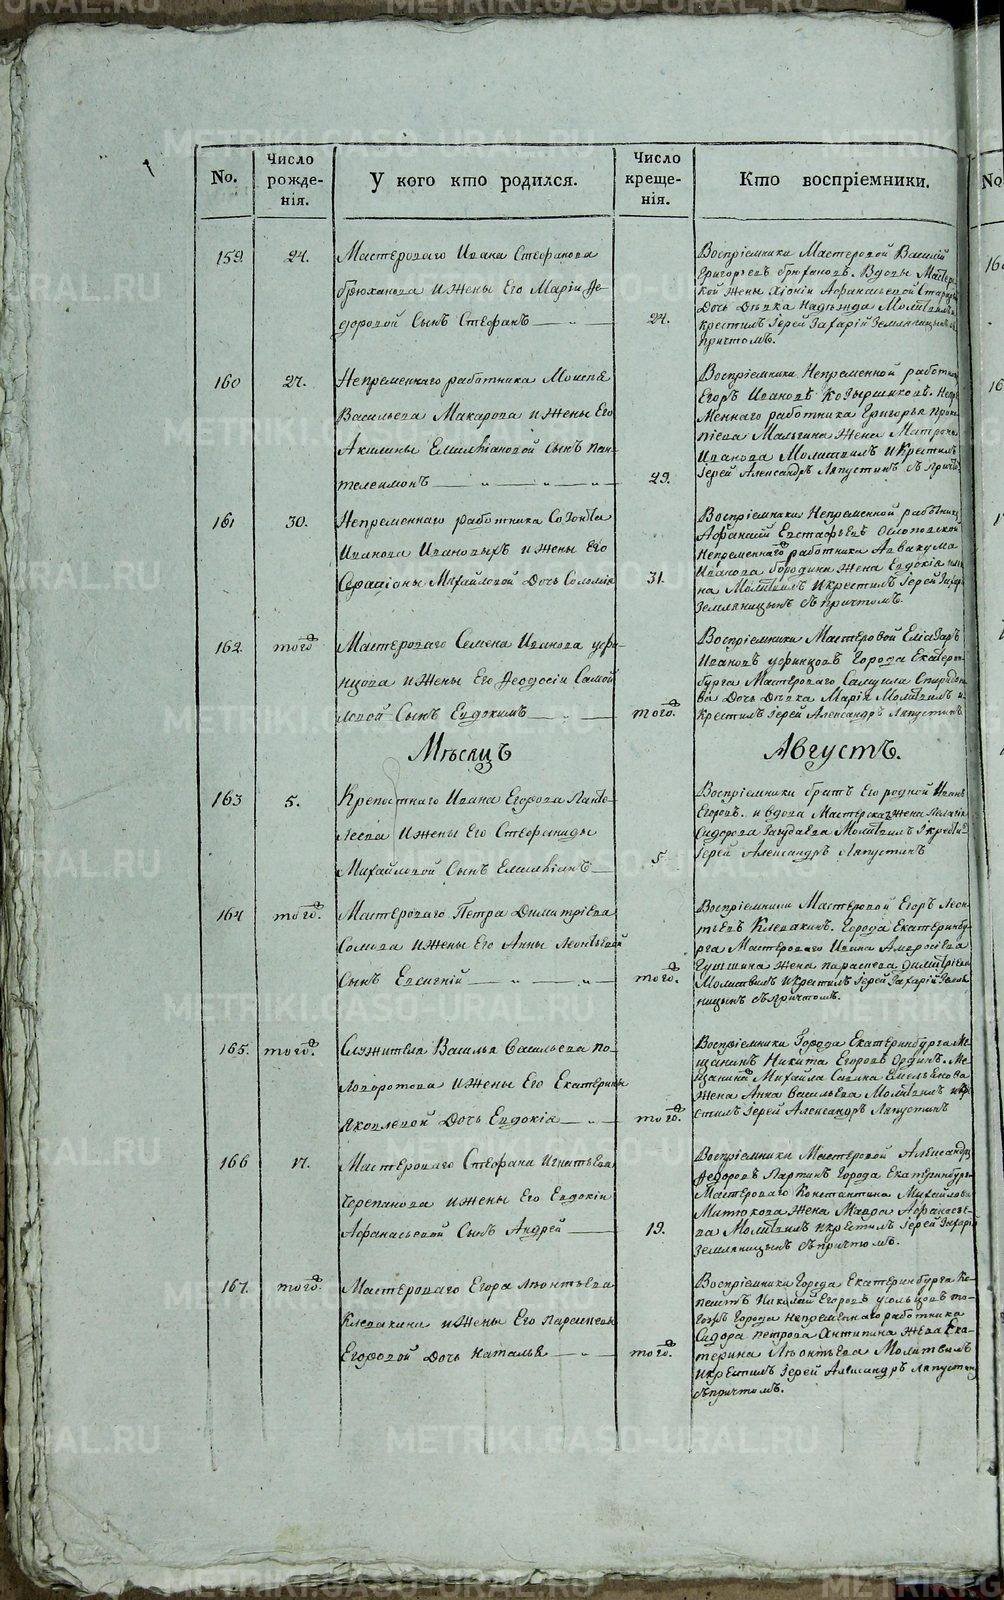 No.
Число рожде-нія.
У кого кто родился.
Число креще-нія.
Кто воспріемники.
159.
24.
Мастероваго Ивана Стефанова
Брюханова и жены Его Маріи Фе-
доровой Сынъ Стефанъ
24.
Воспріемники Мастеровой Василій
Григорьевъ Брюхановъ. Вдовы Мастер
кой жены Хіоніи Афанасьевой
Дочь Дѣвка Надежда Молитвилъ
крестилъ Іерей Захарій Земляницынъ
причтомъ.
160
27.
Непременнаго работника Моисея
Васильева Макарова и жены Его
Акилины Емиліановой Сынъ Пан-
телеимонъ
29.
Воспріемники Непременной работни
Егоръ Ивановъ Козырщиковъ. Непре
меннаго работника Григорья Проко
піева Малыгина Жена Матрона
Иванова Молитвилъ и Крестилъ
Іерей Александръ Ляпустинъ съ прич
161
30.
Непременнаго работника Созонта
Иванова Ивановыхъ и жены Его
Серапіоны Михайловой Дочь Соломія
31.
Воспріемники Непременной работникъ
Афанасій Евстафьевъ
Непременнаго работника Аввакума
Иванова Бородина жена Евдокія
на Молитвилъ и крестилъ Іерей Захар
Земляницынъ съ причтомъ.
162.
тогоѳ
Мастероваго Семена Иванова Уфи-
нцова и жены Его Феодосіи Самой
ловой Сынъ Евдокимъ
тогоѳ.
Воспріемники Мастеровой Еліазаръ
Ивановъ Уфинцовъ Города Екатерин
бурга Мастероваго Самуила Спиридон
ва Дочь Дѣвка Марія Молитвилъ и
крестилъ Іерей Александръ Ляпустинъ
Мѣсяцъ
Августъ.
163
5.
Крепостнаго Ивана Егорова Панте-
леева и жены Его Стефаниды
Михайловой Сынъ Емиліанъ
5
Воспріемники братъ Его родной Иванъ
Егоровъ. и вдова Мастерская жена Пелагія
Сидорова Молитвилъ и крестил
Іерей Александръ Ляпустинъ
164
тогоѳ.
Мастероваго Петра Димитріева
Сомова и жены Его Анны Леонтьевой
Сынъ Евсигній
тогоѳ.
Воспріемники Мастеровой Егоръ Леон-
тьевъ Клевакинъ. Города Екатеринбу-
рга Мастероваго Ивана Амвросіева
жена Параскева Димитріева
Молитвилъ и крестилъ Іерей Захарій Земля
ницынъ съ причтомъ.
165.
тогоѳ.
Служителя Василья Васильева По-
лоротова и жены Его Екатерины
Яковлевой Дочь Евдокія
тогоѳ.
Воспріемники Города Екатеринбурга Ме-
щанинъ Никита Егоровъ Ордин. Ме-
щанина Михайла Савина Емельянова
жена Анна Васильева Молитвилъ и кре
стилъ Іерей Александръ Ляпустинъ
166
17.
Мастероваго Стефана Игнатьева
Черепанова и жены Его Евдокіи
Афанасьевой Сынъ Андрей
19.
Воспріемники Мастеровой Александръ
Федоровъ Ларгинъ Города Екатеринбурга
Мастероваго Константина Михайлова
Митюкова Жена Мавра Афанасье-
ва Молитвилъ и крестилъ Іерей Захарій
Земляницынъ съ причтомъ.
167.
тогоѳ.
Мастероваго Егора Леонтьева
Клевакина и жены Его Параскевы
Егоровой Дочь Наталья
тогоѳ.
Воспріемники Города Екатеринбурга Ко-
піистъ Николай Егоровъ Усольцовъ то-
гожъ Города непременнаго работника
Сидора Петрова Антипина Жена Ека-
терина Леонтьева Молитвилъ
и крестилъ Іерей Александръ Ляпустинъ
съ причтомъ.
METRIKI.GASO-URAL.RU